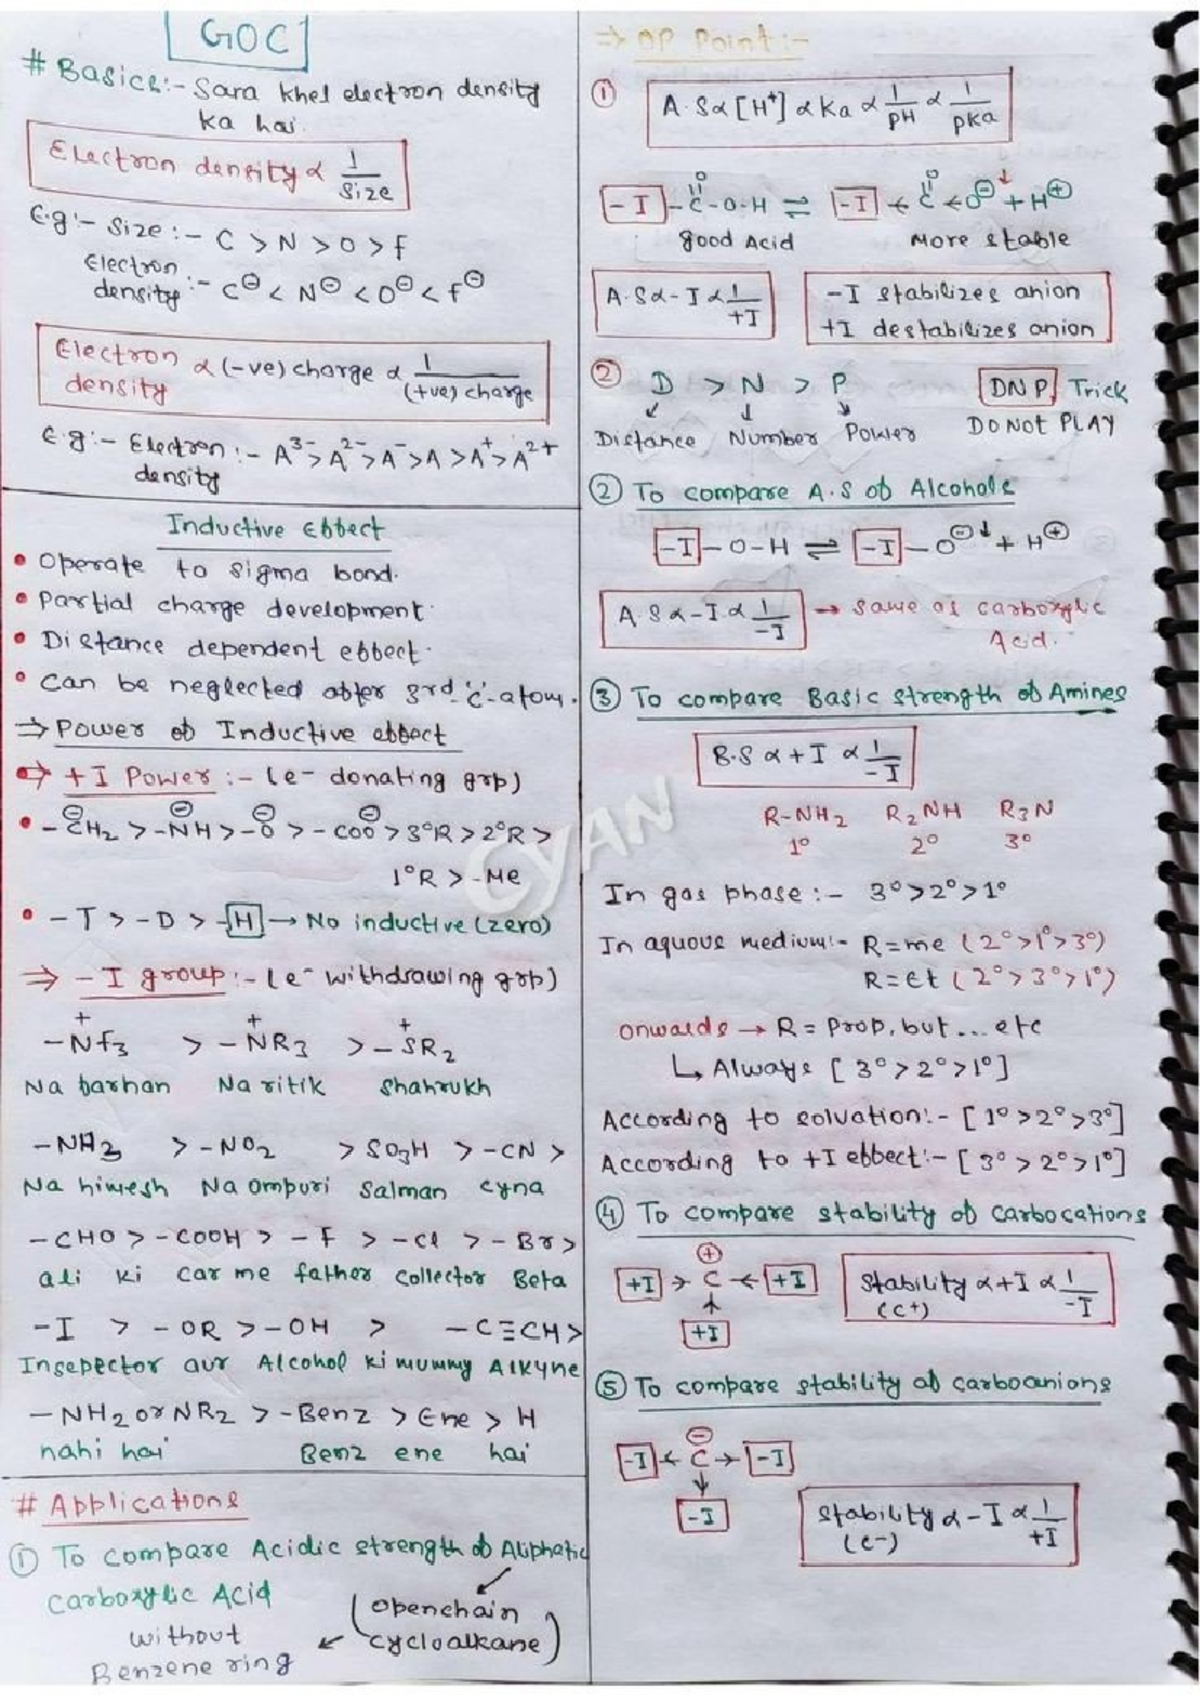 GOC
# Basics:- Sara khel electron density
ka hai.
Electron density ∝ 1/Size
E.g:- Size :- C > N > O > F
Electron density :- C⊖ < N⊖ < O⊖ < F⊖
Electron density ∝ (-ve) charge ∝ 1/(+ve) charge
E.g:- Electron density :- A³⁻ > A²⁻ > A⁻ > A > A⁺ > A²⁺
Inductive Effect
• Operate to sigma bond.
• Partial charge development.
• Distance dependent effect.
• Can be neglected after 3rd 'C'-atom.
⇒ Power of Inductive effect
⇒ +I Power :- (e⁻ donating grp)
• -C⊖H₂ > -N⊖H > -O⊖ > -COO⊖ > 3°R > 2°R >
1°R > -Me
• -T > -D > -H → No inductive (zero)
⇒ -I group :- (e⁻ withdrawing grp)
-N⁺F₃ > -N⁺R₃ > -S⁺R₂
Na farhan Na ritik Shahrukh
-NH₃ > -NO₂ > SO₃H > -CN >
Na himesh Na ompuri Salman cyna
-CHO > -COOH > -F > -Cl > -Br >
ali ki car me father collector Beta
-I > -OR > -OH > -C≡CH >
Insepector aur Alcohol ki mummy Alkyne
-NH₂ or NR₂ > -Benz > Ene > H
nahi hai Benz ene hai
# Applications
① To compare Acidic strength of Aliphatic
carboxylic Acid
(openchain
cycloalkane)
without
Benzene ring
⇒ OP Point :-
① A.S ∝ [H⁺] ∝ Ka ∝ 1/pH ∝ 1/pKa
-I -C(=O)-O-H ⇌ -I ← C(=O) ← O⊖↓ + H⊕
good Acid More stable
A.S ∝ -I ∝ 1/+I
-I stabilizes anion
+I destabilizes anion
② D > N > P DNP Trick
Distance Number Power DO NOT PLAY
② To compare A.S of Alcohols
-I -O-H ⇌ -I -O⊖↓ + H⊕
A.S ∝ -I ∝ 1/-I → Same as carboxylic
Acid.
③ To compare Basic strength of Amines
B.S ∝ +I ∝ 1/-I
R-NH₂ R₂NH R₃N
1° 2° 3°
In gas phase :- 3° > 2° > 1°
In aquous medium:- R = me (2° > 1° > 3°)
R = Et (2° > 3° > 1°)
onwards → R = Prop, but ... etc
↳ Always [3° > 2° > 1°]
According to solvation:- [1° > 2° > 3°]
According to +I effect:- [3° > 2° > 1°]
④ To compare stability of carbocations
+I → C⊕ ← +I
↑
+I
Stability (C⁺) ∝ +I ∝ 1/-I
⑤ To compare stability of carboanions
-I ← C⊖ → -I
↓
-I
Stability (C⁻) ∝ -I ∝ 1/+I
CYAN